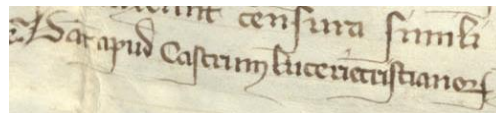 censura simili
Dat apud Castrum lucerie cristianoꝝ